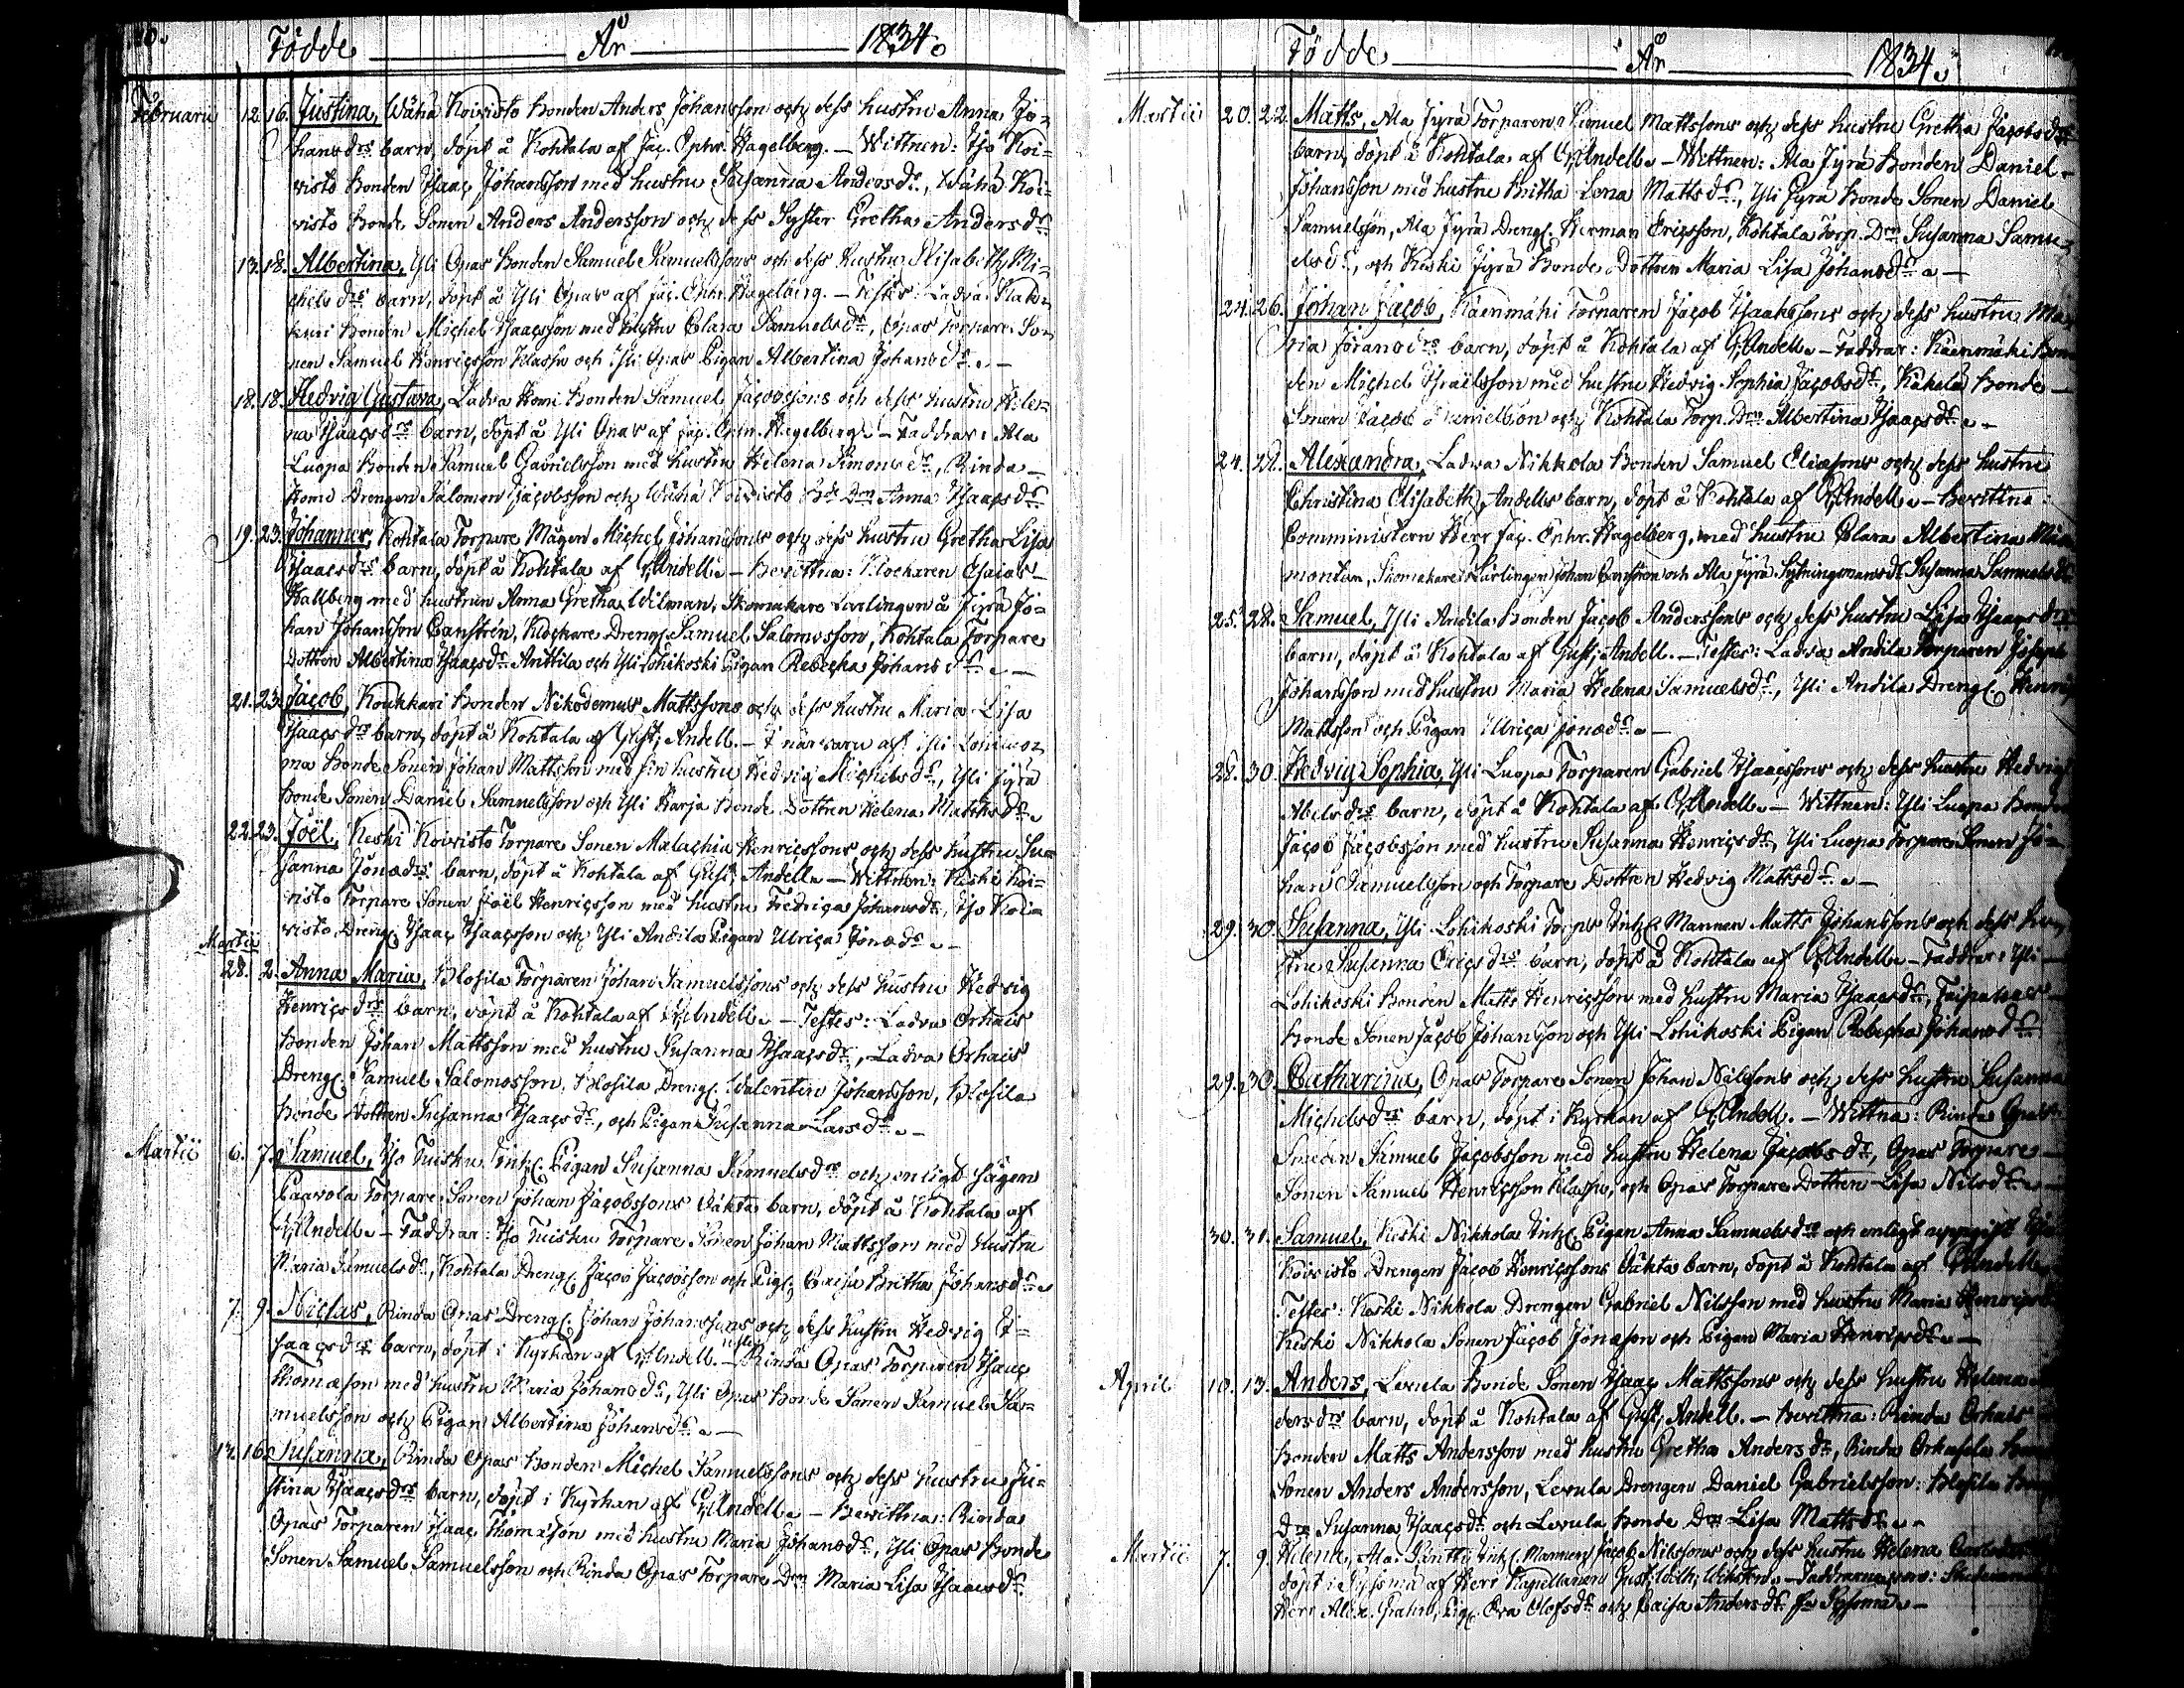 Födde År 1834.
Februarii 12. 16. Justina, Wähä Koivisto Bonden Anders Johansson och dess hustru Anna Jo-
hansdrs barn, döpt å Kohtala af Jac. Ephr. Hagelberg. — Wittnen: Iso Koi-
visto Bonden Isaac Johansson med hustru Susanna Andersdr, Wähä Koi-
visto Bonde Sonen Anders Andersson och dess Syster Gretha Andersdr
13. 18. Albertina, Yli Opas Bonden Samuel Samuelssons och dess hustru Elisabeth Mi-
chelsdrs barn, döpt å Yli Opas af Jac. Ephr. Hagelberg. — Testes: Ladva
Bonden Michel Isaacsson med hustru Clara Samuelsdr, Opas Torpare So-
nen Samuel Henricsson Klasse och Yli Opas Pigan Albertina Johansdr. —
18. 18. Hedvig Gustava, Ladva Bonden Samuel Jacobssons och dess hustru Hele-
na Isaacsdrs barn, döpt å Yli Opas af Jac. Ephr. Hagelberg. — Faddrar: Ala
Luopa Bonden Samuel Gabrielsson med hustru Helena Simonsdr, Rinda
Drengen Salomon Jacobsson och Wähä Koivisto Bde Drn Anna Isaacsdr.
19. 23. Johannes, Kohtala Torpare Mågen Michel Johanssons och dess hustru Gretha Lisa
Isaacsdrs barn, döpt å Kohtala af G. Andell. — Bevittna: Klockaren Esaias
Hallberg med hustrun Anna Gretha Wilman, Skomakare Lärlingen å Jyrä Jo-
han Johansson Canstrén, Klockare Dreng. Samuel Salomosson, Kohtala Torpare
Dottren Albertina Isaacsdr Anttila och Yli Lohikoski Pigan Rebecka Johansdr. —
21. 23. Jacob, Koukkari Bonden Nikodemus Mattssons och dess hustru Maria Lisa
Isaacsdrs barn, döpt å Kohtala af Gust. Andell. — I närvaro af: Yli
ma Bonde Sonen Johan Mattsson med sin hustru Hedvig Michelsdr, Yli Jyrä
Bonde Sonen Daniel Samuelsson och Yli Harja Bonde Dottren Helena Mattsdr.
22. 23. Joël, Keski Koivisto Torpare Sonen Malachia Henricssons och dess hustru Su-
sanna Jonædrs barn, döpt å Kohtala af Gust. Andell. — Wittnen: Keski Koi-
visto Torpare Sonen Joël Henricsson med hustru Fredrica Johansdr, Iso Koi-
visto Dreng. Isaac Isaacsson och Yli Andila Pigan Ulrica Jonædr. —
Martii
28. 2. Anna Maria, Blosila Torparen Johan Samuelssons och dess hustru Hedvig
Henricsdrs barn, döpt å Kohtala af G. Andell. — Testes: Ladva Orhais
Bonden Johan Mattsson med hustru Susanna Isaacsdr, Ladva Orhais
Dreng. Samuel Salomosson, Blosila Dreng. Valentin Johansson, Blosila
Bonde Dottren Susanna Isaacsdr, och Pigan Susanna Larsdr. —
Martii 6. 7. Samuel, Iso Tuisku Inh. Pigan Susanna Samuelsdrs och enligt sägen
Paavola Torpare Sonen Johan Jacobssons oäkta barn, döpt å Kohtala af
G. Andell. — Faddrar: Iso Tuisku Torpare Sonen Johan Mattsson med hustru
Maria Samuelsdr, Kohtala Dreng. Jacob Jacobsson och Pig. Caisa Britha Johansdr.
7. 9. Niclas, Rinda Opas Dreng. Johan Johanssons och dess hustru Hedvig I-
saacsdrs barn, döpt i Kyrkan af G. Andell. — Testes Rinda Opas Torparen Isaac
Thomæson med hustru Maria Johansdr, Yli Opas Bonde Sonen Samuel Sa-
muelsson och Pigan Albertina Johansdr. —
12. 16. Susanna, Rinda Opas Bonden Michel Samuelssons och dess hustru Ju-
stina Isaacsdrs barn, döpt i Kyrkan af G. Andell. — Bevittna: Rinda
Opas Torparen Isaac Thomæson med hustru Maria Johansdr, Yli Opas Bonde
Sonen Samuel Samuelsson och Rinda Opas Torpare Drn Maria Lisa Isaacsdr.
Födde År 1834.
Martii 20. 22. Matts, Ala Jyrä Torparen Samuel Mattssons och dess hustru Gretha Jacobsdrs
barn, döpt å Kohtala af G. Andell. — Wittnen: Ala Jyrä Bonden Daniel
Johansson med hustru Britha Lena Mattsdr, Yli Jyrä Bonde Sonen Daniel
Samuelsson, Ala Jyrä Dreng. Herman Ericsson, Kohtala Torp. Drn Susanna Samu-
elsdr, och Keski Jyrä Bonde Dottren Maria Lisa Johansdr. —
24. 26. Johan Jacob, Käenmäki Torparen Jacob Isaakssons och dess hustru Ma-
ria Göransdrs barn, döpt å Kohtala af G. Andell. — Faddrar: Käenmäki Bon-
den Michel Israëlsson med hustru Hedvig Sophia Jacobsdr, Käkelä Bonde
Sonen Jacob Samuelsson och Kohtala Torp. Drn Albertina Isaacsdr. —
24. 28. Alexandra, Ladva Nikkola Bonden Samuel Eliæsons och dess hustru
Christina Elisabeth Andells barn, döpt å Kohtala af G. Andell. — Bevittna:
Comministern Herr Jac. Ephr. Hagelberg, med hustru Clara Albertina
montan, Skomakare Lärlingen Johan Canstrén och Ala Jyrä Sytningsmans Dr Susanna Samuelsdr
25. 28. Samuel, Yli Andila Bonden Jacob Anderssons och dess hustru Lisa Isaacsdrs
barn, döpt å Kohtala af Gust. Andell. — Testes: Ladva Andila Torparen Joseph
Johansson med hustru Maria Helena Samuelsdr, Yli Andila Dreng. Henric
Mattsson och Pigan Ulrica Jonædr. —
28. 30. Hedvig Sophia, Yli Luopa Torparen Gabriel Isaacssons och dess hustru Hedvig
Abelsdrs barn, döpt å Kohtala af G. Andell. — Wittnen: Yli Luopa Bonden
Jacob Jacobsson med hustru Susanna Henricsdr, Yli Luopa Torpare Sonen Jo-
han Samuelsson och Torpare Dottren Hedvig Mattsdr. —
29. 30. Susanna, Yli Lohikoski Torps Inh. Mannen Matts Johanssons och dess hu-
stru Susanna Ericsdrs barn, döpt å Kohtala af G. Andell. — Faddrar: Yli
Lohikoski Bonden Matts Henricsson med hustru Maria Isaacsdr,
Bonde Sonen Jacob Johansson och Yli Lohikoski Pigan Rebecka Johansdr
29. 30. Catharina, Opas Torpare Sonen Johan Nilssons och dess hustru Susanna
Michelsdrs barn, döpt i Kyrkan af G. Andell. — Wittna: Rinda Opas
Smeden Samuel Jacobsson med hustru Helena Jacobsdr, Opas Torpare
Sonen Samuel Henricsson Klasse, och Opas Torpare Dottren Lisa Nilsdr. —
30. 31. Samuel, Keski Nikkola Inh. Pigan Anna Samuelsdrs och enligt uppgift
Koivisto Drengen Jacob Henricssons oäkta barn, döpt å Kohtala af G. Andell.
Testes: Keski Nikkola Drengen Gabriel Nilsson med hustru Maria Henricsdr
Keski Nikkola Sonen Jacob Jonæson och Pigan Maria Henricsdr. —
April 10. 13. Anders, Levula Bonde Sonen Isaac Mattssons och dess hustru Helena
dersdrs barn, döpt å Kohtala af Gust. Andell. — Bevittna: Rinda Orhais
Bonden Matts Andersson med hustru Gretha Andersdr, Rinda
Sonen Anders Andersson, Levula Drengen Daniel Gabrielsson: Blosila
Drn Susanna Isaacsdr och Levula Bonde Drn Lisa Mattsdr. —
Martii 7. 9. Helena, Ala Päntti Inh. Mannen Jacob Nilssons och dess hustru Helena
döpt i af Herr Kapellanen Gust. Wilh.
Herr Alex. Pig. Eva Olofsdr och Caisa Andersdr